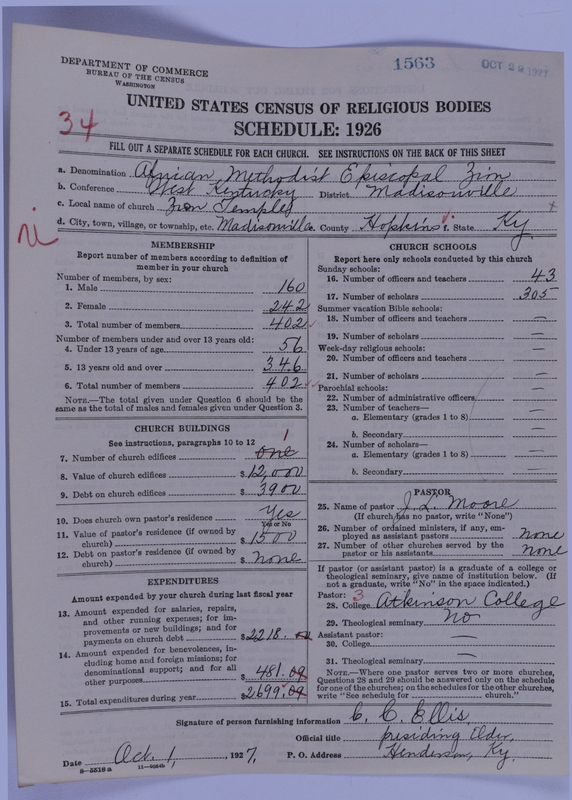 DEPARTMENT OF COMMERCE
BUREAU OF THE CENSUS
WASHINGTON
1563
OCT 1927
UNITED STATES CENSUS OF RELIGIOUS BODIES
34
SCHEDULE: 1926
FILL OUT A SEPARATE SCHEDULE FOR EACH CHURCH. SEE INSTRUCTIONS ON THE BACK OF THIS SHEET
a. Denomination African Methodist Episcopal Zion
b. Conference West Kentucky District Madisonville
c. Local name of church Zion Temple
d. City, town, village, or township, etc. Madisonville e. County Hopkins f. State Ky
MEMBERSHIP
Report number of members according to definition of
member in your church
Number of members, by sex:
1. Male 160
2. Female 242
3. Total number of members 402
Number of members under and over 13 years old:
4. Under 13 years of age 56
5. 13 years old and over 346
6. Total number of members 402
NOTE.—The total given under Question 6 should be
same as the total of males and females given under Question 3.
CHURCH BUILDINGS
See instructions, paragraphs 10 to 12
7. Number of church edifices one 1
8. Value of church edifices $ 12,000
9. Debt on church edifices $ 3900
10. Does church own pastor's residence Yes
Yes or No
11. Value of pastor's residence (if owned by
church) $ 1500
12. Debt on pastor's residence (if owned by
church) $ none
EXPENDITURES
Amount expended by your church during last fiscal year
13. Amount expended for salaries, repairs,
and other running expenses; for im-
provements or new buildings; and for
payments on church debt $ 2218.00
14. Amount expended for benevolences, in-
cluding home and foreign missions; for
denominational support; and for all
other purposes $ 481.09
15. Total expenditures during year $ 2699.09
CHURCH SCHOOLS
Report here only schools conducted by this church
Sunday schools:
16. Number of officers and teachers 43
17. Number of scholars 305
Summer vacation Bible schools:
18. Number of officers and teachers —
19. Number of scholars —
Week-day religious schools:
20. Number of officers and teachers —
21. Number of scholars —
Parochial schools:
22. Number of administrative officers —
23. Number of teachers—
a. Elementary (grades 1 to 8) —
b. Secondary —
24. Number of scholars—
a. Elementary (grades 1 to 8) —
b. Secondary —
PASTOR
25. Name of pastor J. L. Moore
(If church has no pastor, write "None")
26. Number of ordained ministers, if any, em-
ployed as assistant pastors none
27. Number of other churches served by the
pastor or his assistants none
If pastor (or assistant pastor) is a graduate of a college or
theological seminary, give name of institution below. (If
not a graduate, write "No" in the space indicated.)
Pastor: 3
28. College Atkinson College
29. Theological seminary No
Assistant pastor:
30. College —
31. Theological seminary —
NOTE.—Where one pastor serves two or more churches,
Questions 28 and 29 should be answered only on the schedule
for one of the churches; on the schedules for the other churches,
write "See schedule for church."
Signature of person furnishing information C. C. Ellis
Official title presiding Elder
Date Oct. 1, 1927, P. O. Address Henderson, Ky.
8—5518 a